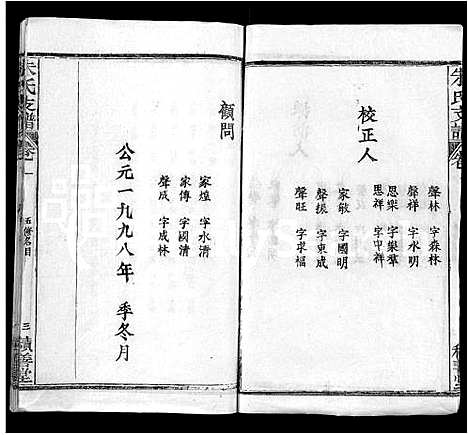 朱氏支譜
校正人
聲林 字森林
聲祥 字水明
思樂 字樂草
思祥 字中祥
家敏 字國明
聲振 字東成
聲旺 字求福
顧問
家煌 字水清
家傳 字國清
聲成 字成林
公元一九九八年 季冬月
朱氏支譜
卷一
五修名目
三
積善堂